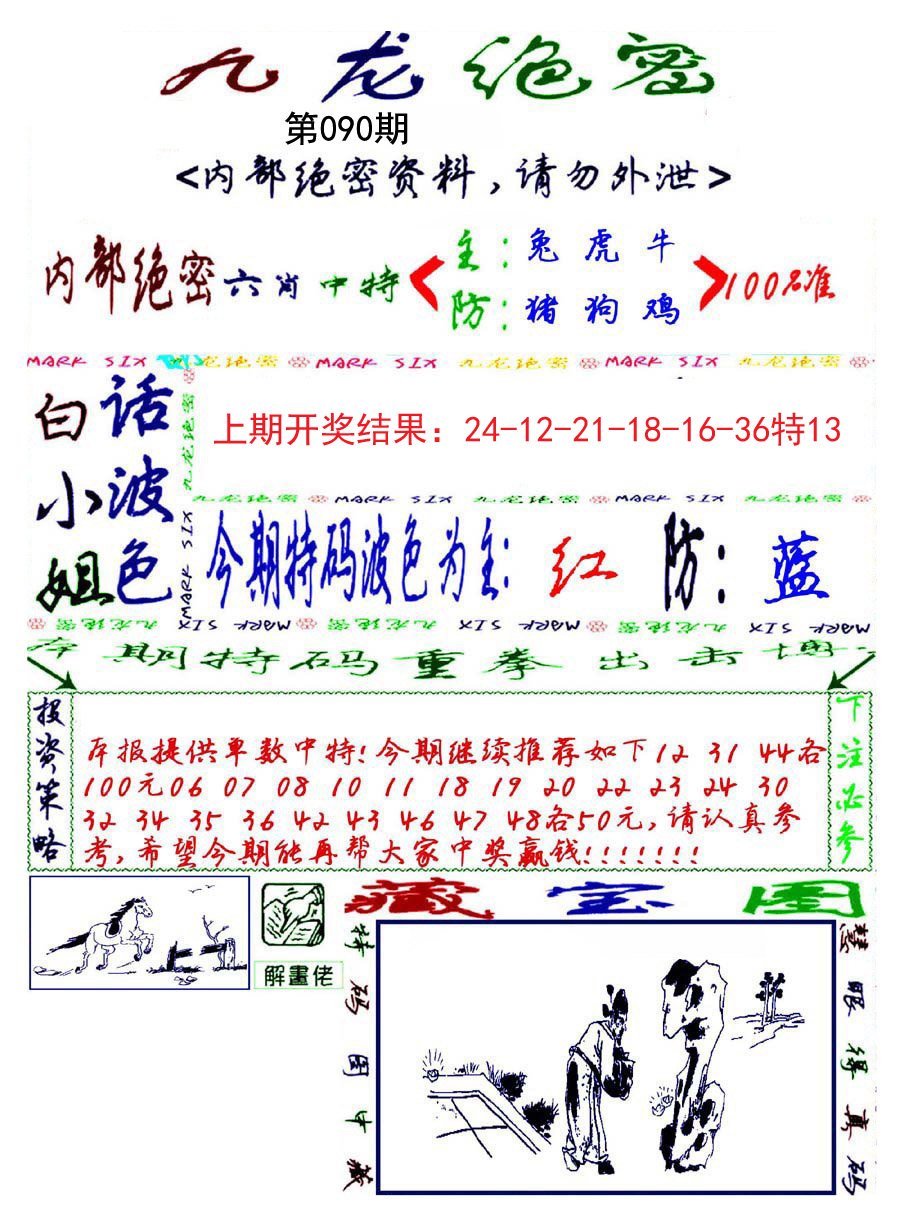 九龙绝密
第090期
<内部绝密资料,请勿外泄>
内部绝密六肖中特
主:兔虎牛
防:猪狗鸡
100%准
MARK SIX 九龙绝密 MARK SIX 九龙绝密 MARK SIX 九龙绝密
白话
小波
姐色
九龙绝密
MARK SIX
上期开奖结果：24-12-21-18-16-36特13
九龙绝密 MARK SIX 九龙绝密 MARK SIX 九龙绝密
今期特码波色为主:红 防:蓝
九龙绝密 MARK SIX 九龙绝密 MARK SIX 九龙绝密 MARK SIX
本期特码重拳出击博
投资策略
本报提供单数中特!今期继续推荐如下12 31 44各
100元06 07 08 10 11 18 19 20 22 23 24 30
32 34 35 36 42 43 46 47 48各50元,请认真参
考,希望今期能再帮大家中奖赢钱!!!!!!!
下注必参
藏宝图
解畫佬
特码图中藏
慧眼得真码